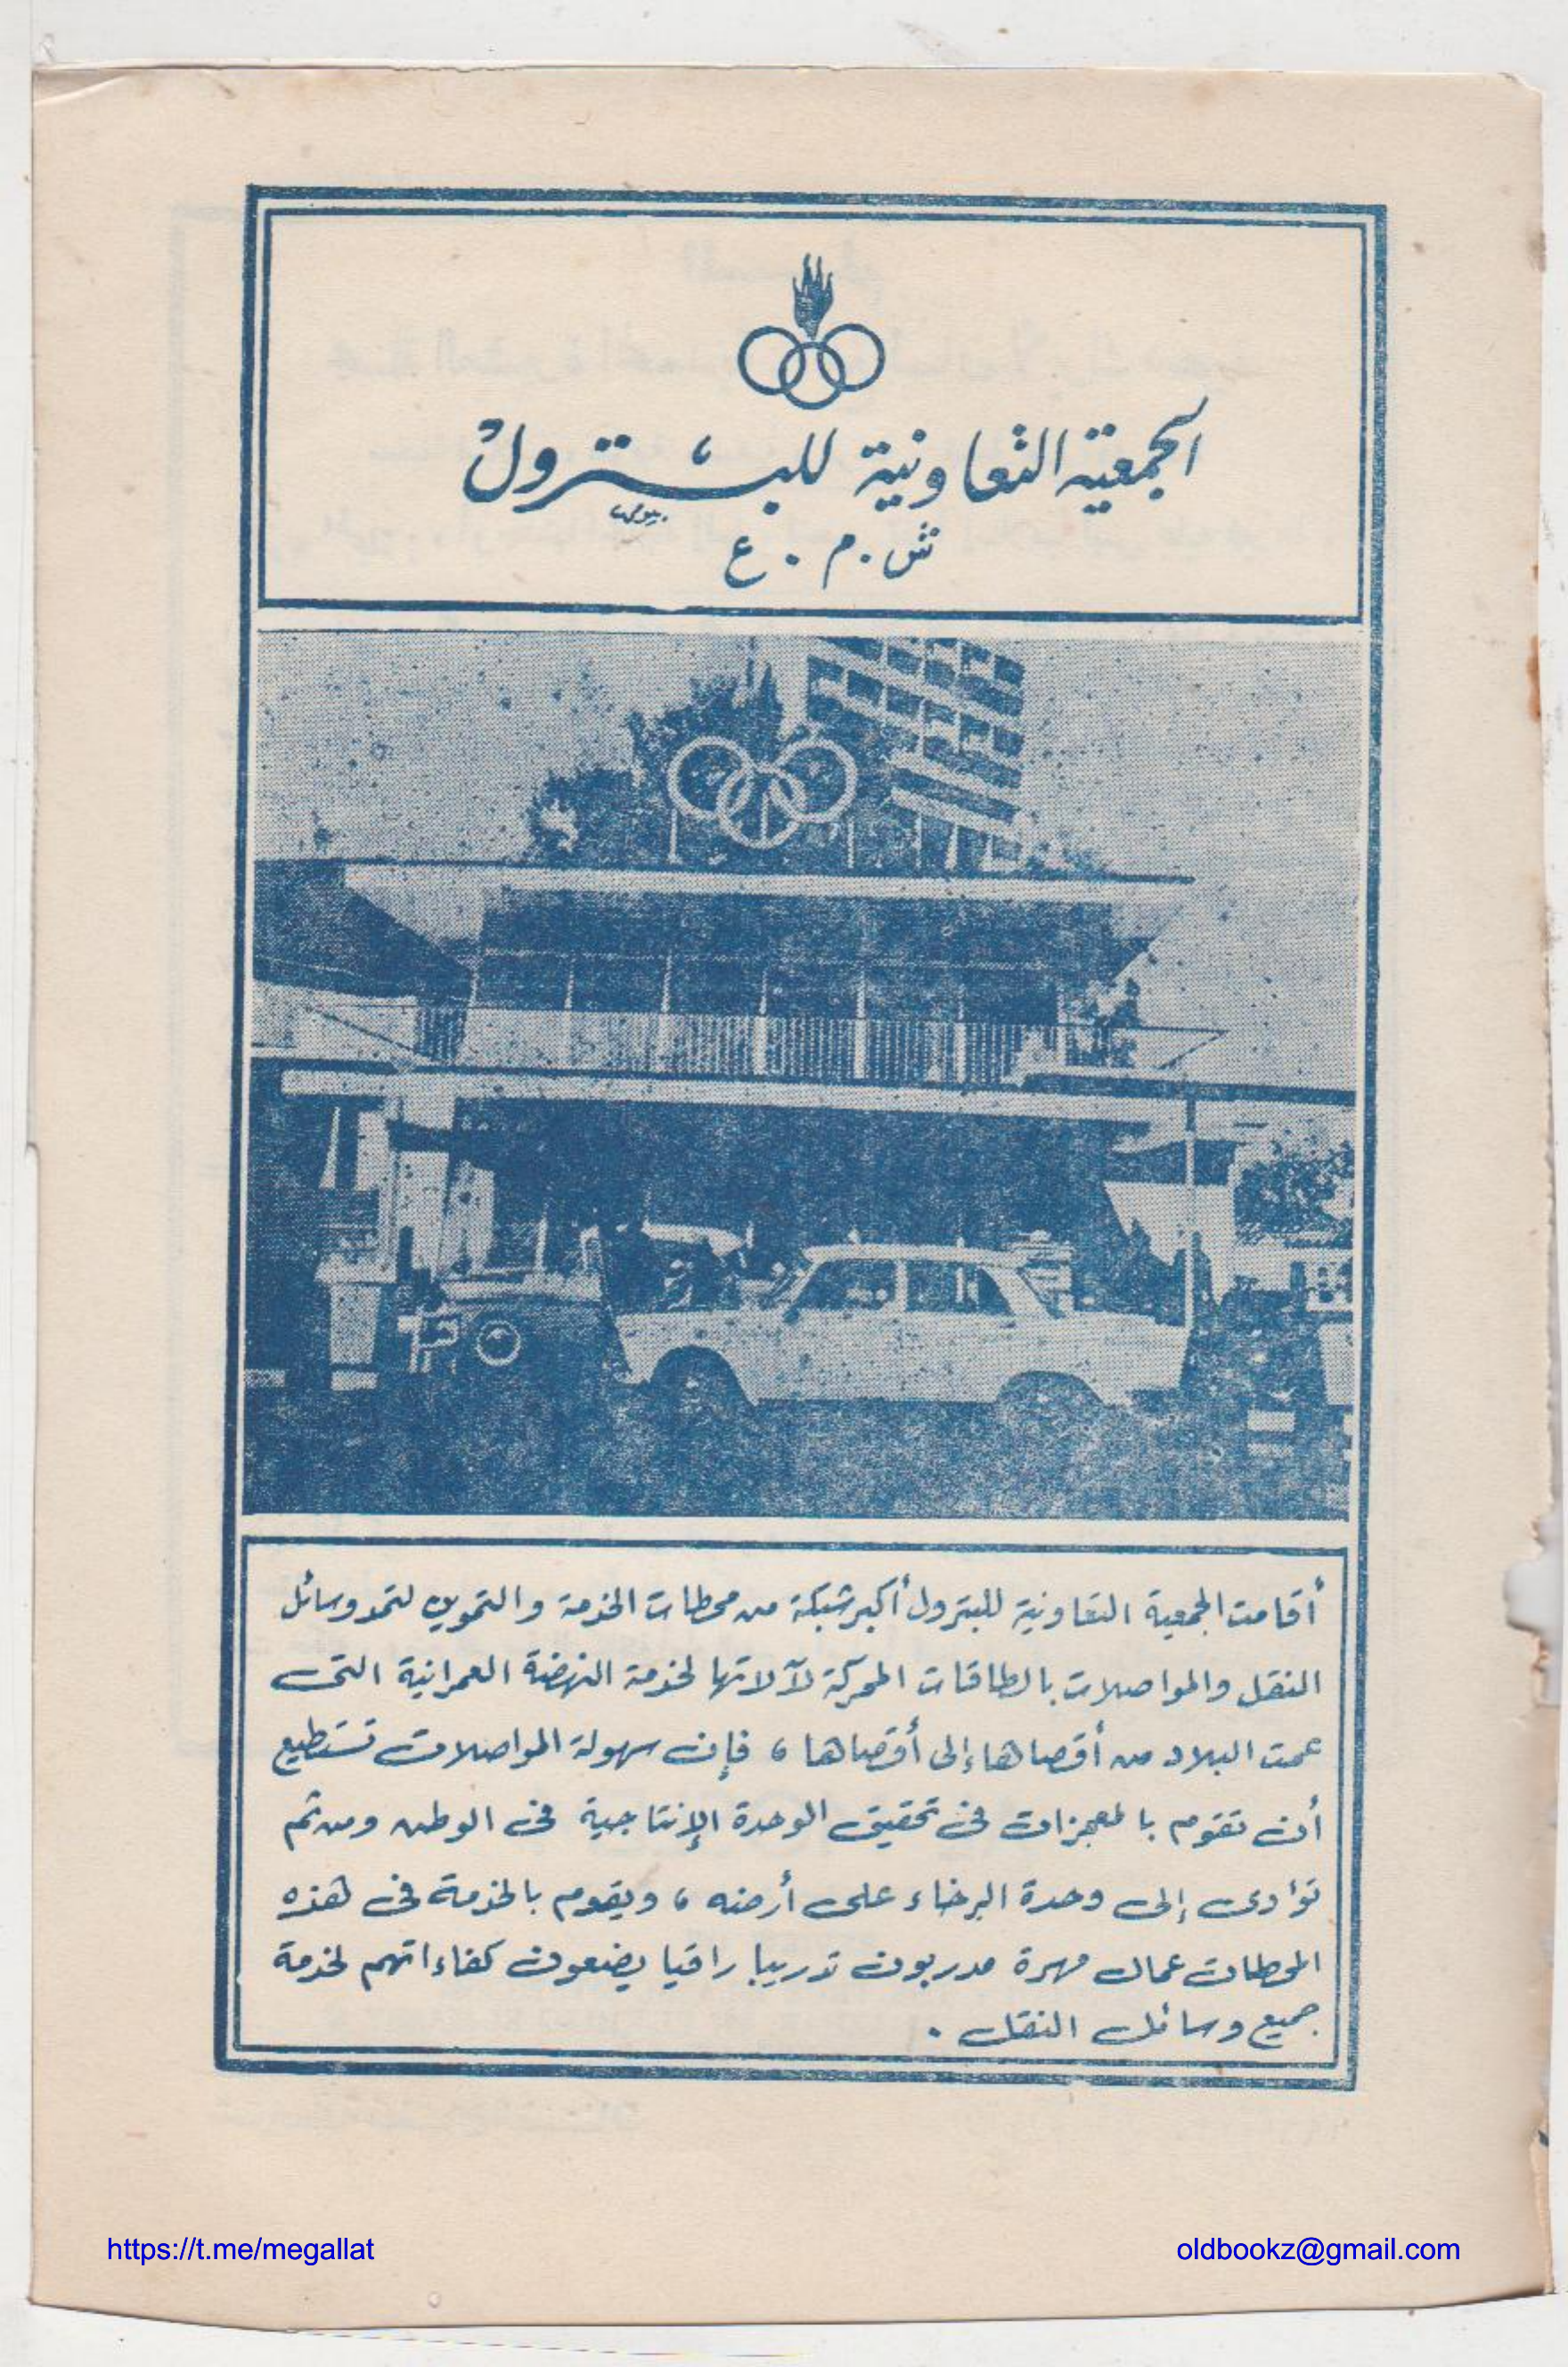 الجمعية التعاونية للبترول
ش . م . ع
أقامت الجمعية التعاونية للبترول أكبر شبكة من محطات الخدمة والتموين لتمد وسائل
النقل والمواصلات بالطاقات المحركة لآلاتها لخدمة النهضة العمرانية التى
عمت البلاد من أقصاها إلى أقصاها ، فإن سهولة المواصلات تستطيع
أن تقوم بالمعجزات فى تحقيق الوحدة الإنتاجية فى الوطن ومن ثم
تؤدى إلى وحدة الرخاء على أرضه ، ويقوم بالخدمة فى هذه
المحطات عمال مهرة مدربون تدريبا راقيا يضعون كفاءاتهم لخدمة
جميع وسائل النقل .
https://t.me/megallat
oldbookz@gmail.com